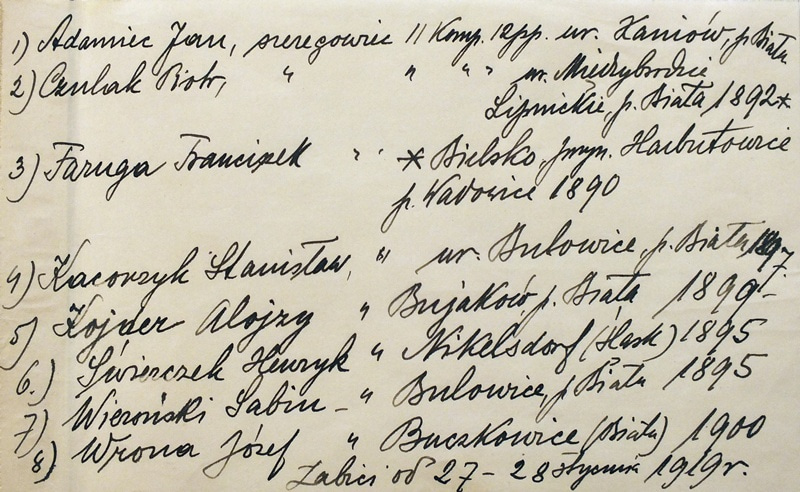 1) Adamiec Jan, szeregowiec 11 Komp. 12pp. ur. Kaniów, p. Biała
2) Czulak Piotr, " " " " ur. Międzybrodzie
Lipnickie, p. Biała 1892*
3) Faruga Franciszek " " * Bielsko, gmin. Harbutowice
p. Wadowice 1890
4) Kacorzyk Stanisław, " ur. Bulowice, p. Biała, 1897.
5) Kojder Alojzy " Bujaków, p. Biała 1899-
6.) Świerczek Henryk " Nikelsdorf (Śląsk) 1895
7) Wieroński Sabin - " Bulowice, p. Biała 1895
8) Wrona Józef " Buczkowice (Biała) 1900
Zabici od 27 - 28 stycznia 1919r.